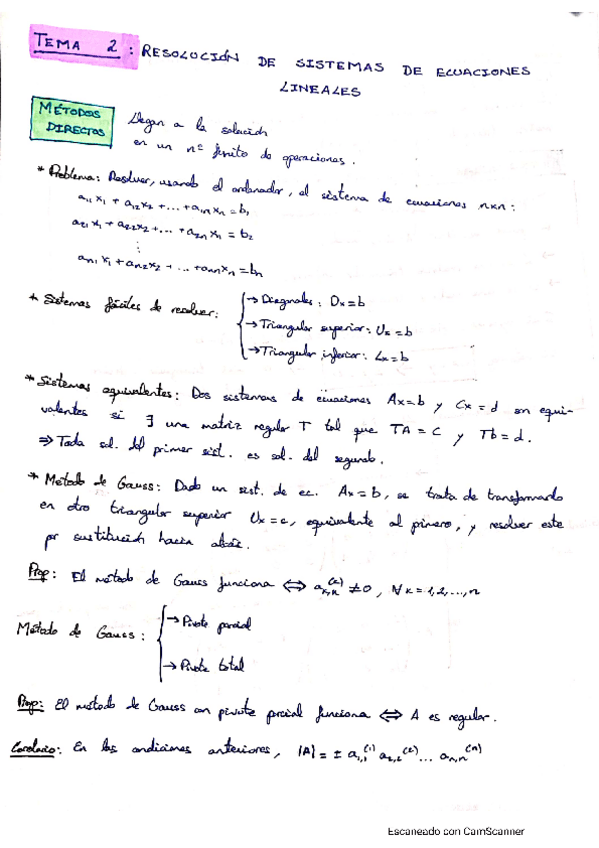 TEMA 2: RESOLUCIÓN DE SISTEMAS DE ECUACIONES
LINEALES
MÉTODOS
DIRECTOS
Llegan a la solución
en un nº finito de operaciones.
* Problema: Resolver, usando el ordenador, el sistema de ecuaciones nxn:
a₁₁x₁ + a₁₂x₂ + ... + a₁ₙxₙ = b₁
a₂₁x₁ + a₂₂x₂ + ... + a₂ₙxₙ = b₂
⋮
aₙ₁x₁ + aₙ₂x₂ + ... + aₙₙxₙ = bₙ
* Sistemas fáciles de resolver:
→ Diagonales: Dx = b
→ Triangular superior: Ux = b
→ Triangular inferior: Lx = b
* Sistemas equivalentes: Dos sistemas de ecuaciones Ax=b y Cx = d son equi-
valentes si ∃ una matriz regular T tal que TA = C y Tb = d.
⇒ Toda sol. del primer sist. es sol. del segundo.
* Método de Gauss: Dado un sist. de ec. Ax = b, se trata de transformarlo
en otro triangular superior Ux = c, equivalente al primero, y resolver este
por sustitución hacia atrás.
Prop: El método de Gauss funciona ⟺ aₖ,ₖ⁽ᵏ⁾ ≠ 0, ∀k = 1,2,...,n
Método de Gauss:
→ Pivote parcial
→ Pivote total
Prop: El método de Gauss con pivote parcial funciona ⟺ A es regular.
Corolario: En las condiciones anteriores, |A| = ± a₁,₁⁽¹⁾ a₂,₂⁽²⁾ ... aₙ,ₙ⁽ⁿ⁾
Escaneado con CamScanner